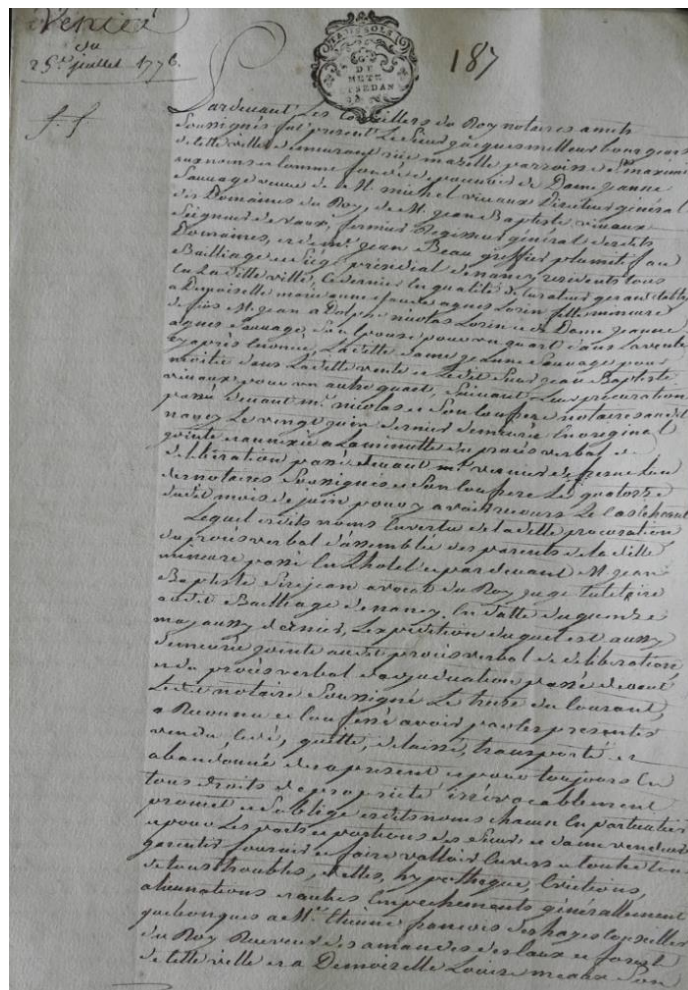 Vente
du
25 juillet 1776.
f. f
187
DE
METZ
SEDAN
Pardevant Les Conseillers du Roy notaires a metz
Soussignés fut present Le Sieur jacques meilleur bourgeois
de cette ville y demeurant rüe mazelle parroisse st maximin
aux noms et comme fondé de pouvoir de Dame jeanne
Sauvage veuve de M. michel vivaux Directeur général
des Domaines du Roy, de M. jean Baptiste vivaux
Seigneur de vaux, fermier Regisseur général desdits
Domaines, et de mr. jean Beau greffier plumitif au
Bailliage et Siége présidial de nancy residents tous
en La ditte ville, Ce dernier en qualité de Curateur
a Demoiselle marie anne agnes Lorin fille mineure
de M. jean nicolas Lorin et de Dame jeanne
agnes Sauvage, Son Epouse pour un quart dans la vente
cy après énoncée, La ditte Dame jeanne Sauvage pour
moitié dans La ditte vente et Ledit Sieur jean Baptiste
vivaux pour un autre quart, Suivant Leur procuration
passé devant me. nicolas et Son Confrere notaires audit
nancy Le vingt juin dernier demeurée En original
jointe et annexée a La minutte du procés verbal de
delibération passé devant me vernier et Son
des notaires Soussignés et Son Confrere Le quatorze
dudit mois de juin pour y avoir recours Le cas échéant
Lequel esdits noms En vertu de la ditte procuration
du procés verbal d'assemblée des parents de la ditte
mineure passé En L'hotel et pardevant M. jean
Baptiste avocat du Roy juge tutelaire
audit Bailliage de nancy, En datte du quinze
may aussy dernier, L'expedition duquel est aussy
demeurée jointe audit procés verbal de deliberation,
et du procés verbal d'adjudication passé devant
Ledit notaire Soussigné Le treize du Courant,
a Reconnu et Confessé avoir par les presentes
vendu, Cedé, quitté, delaissé, transporté et
abandonné des a present et pour toujours En
tous droits de propriété irrévocablement
promet et S'oblige esdits noms chacun En particulier
et pour Les parts et portions des Sieurs et dame vendeurs
garantir fournir et faire valloir Envers et Contre tous
de tous troubles, dettes, hypotheque, Evictions,
alienations et autres Empechements généralement
quelconques a Mr. Etienne françois deshayes Conseiller
du Roy Receveur des amandes des Eaux et forest
de cette ville et a Demoiselle Louise meaux Son